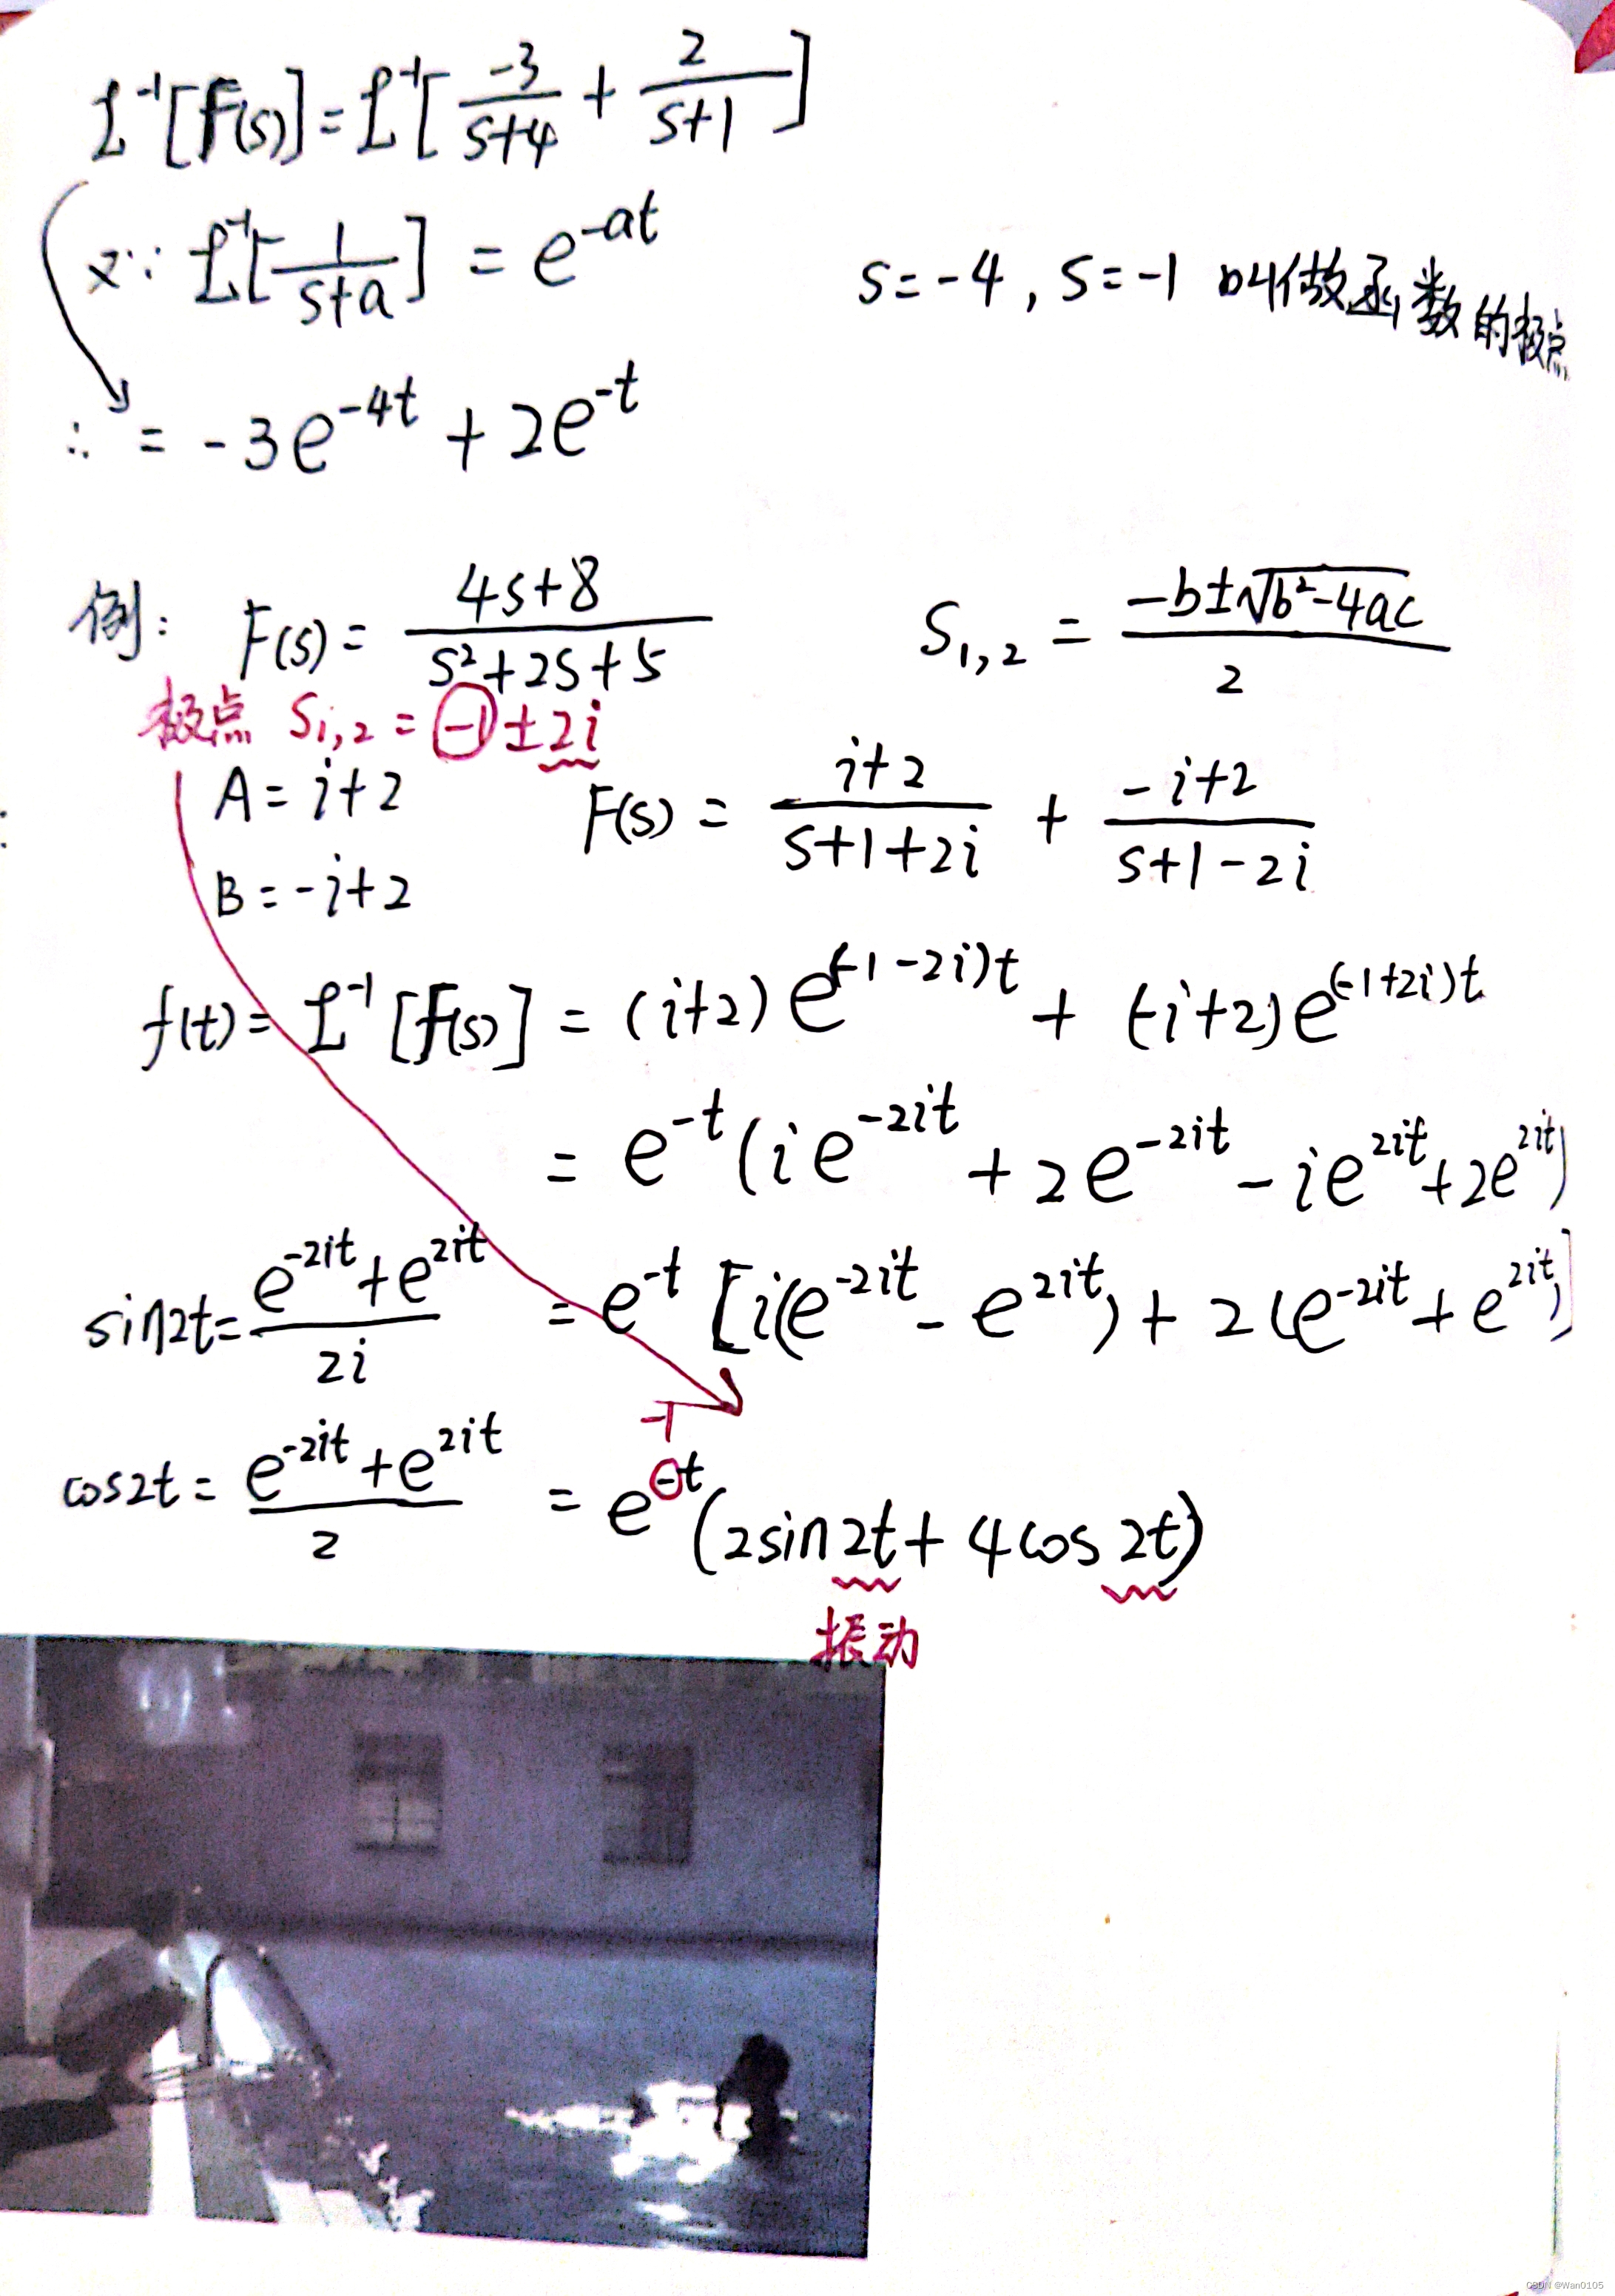 ℒ⁻¹[F(s)] = ℒ⁻¹[ -3/(s+4) + 2/(s+1) ]
又∵ ℒ⁻¹[ 1/(s+a) ] = e^(-at)
s = -4 , s = -1 叫做函数的极点
∴ = -3e^(-4t) + 2e^(-t)
例: F(s) = (4s+8)/(s²+2s+5)
S₁,₂ = (-b±√(b²-4ac))/2
极点 S₁,₂ = -1 ± 2i
A = i+2
B = -i+2
F(s) = (i+2)/(s+1+2i) + (-i+2)/(s+1-2i)
f(t) = ℒ⁻¹[F(s)] = (i+2)e^((-1-2i)t) + (-i+2)e^((-1+2i)t)
= e^(-t)(ie^(-2it) + 2e^(-2it) - ie^(2it) + 2e^(2it))
sin2t = (e^(-2it) + e^(2it))/2i
= e^(-t)[i(e^(-2it) - e^(2it)) + 2(e^(-2it) + e^(2it))]
-1
cos2t = (e^(-2it) + e^(2it))/2
= e^(-t)(2sin2t + 4cos2t)
振动
CSDN @Wan0105